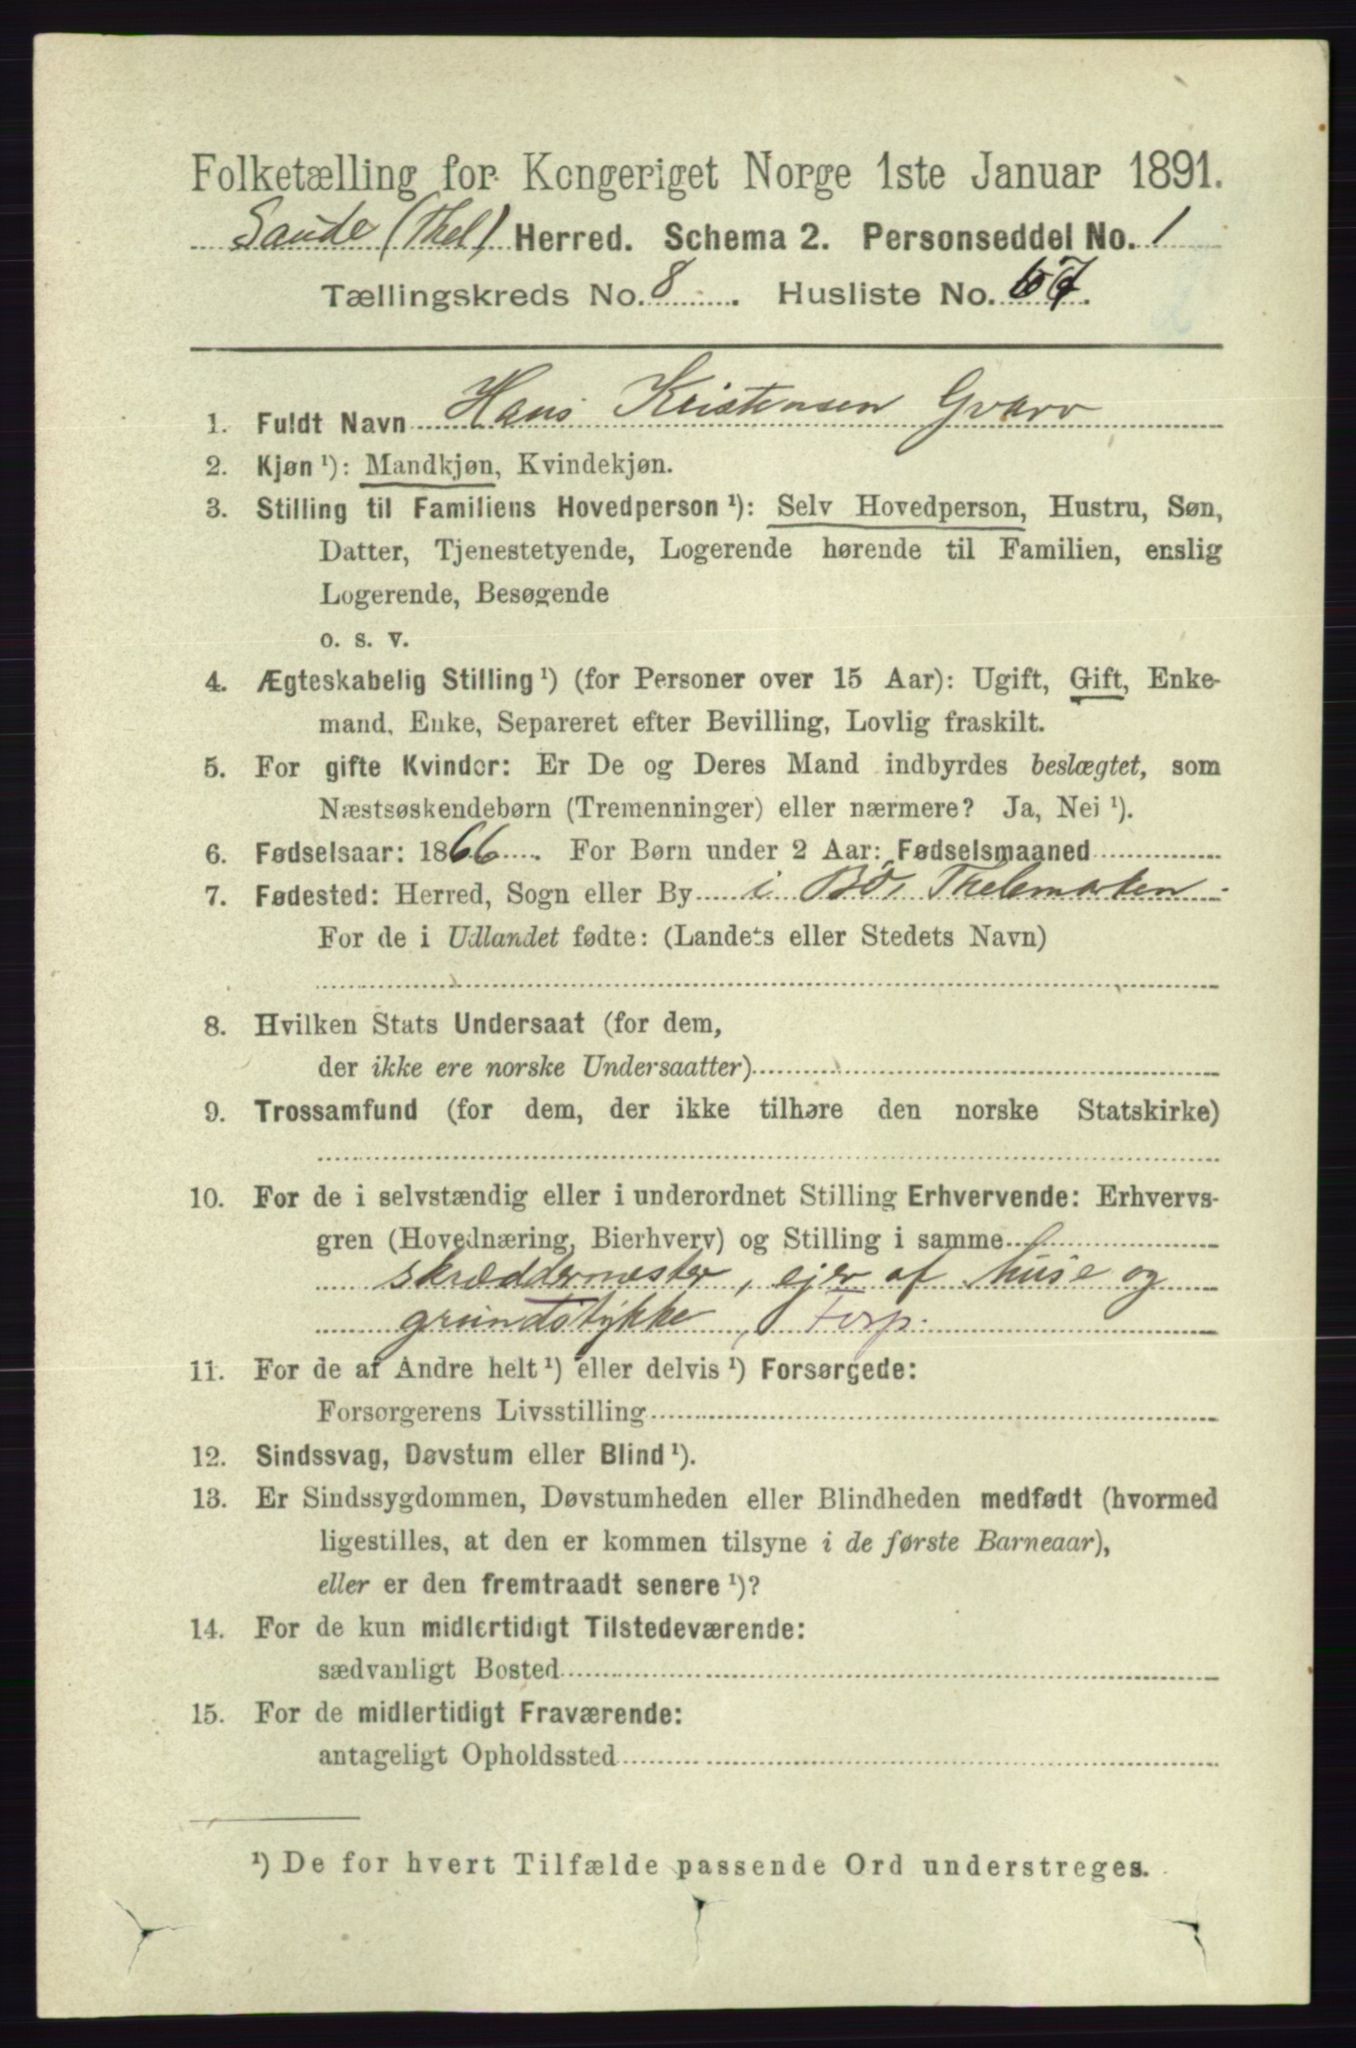 Folketælling for Kongeriget Norge 1ste Januar 1891.
Saude (Thel) Herred. Schema 2. Personseddel No. 1
Tællingskreds No. 8. Husliste No. 67.
1. Fuldt Navn Hans Kristensen Gvarv
2. Kjøn ¹): Mandkjøn, Kvindekjøn.
3. Stilling til Familiens Hovedperson ¹): Selv Hovedperson, Hustru, Søn,
Datter, Tjenestetyende, Logerende hørende til Familien, enslig
Logerende, Besøgende
o. s. v.
4. Ægteskabelig Stilling ¹) (for Personer over 15 Aar): Ugift, Gift, Enke-
mand, Enke, Separeret efter Bevilling, Lovlig fraskilt.
5. For gifte Kvinder: Er De og Deres Mand indbyrdes beslægtet, som
Næstsøskendebørn (Tremenninger) eller nærmere? Ja, Nei ¹).
6. Fødselsaar: 1866. For Børn under 2 Aar: Fødselsmaaned
7. Fødested: Herred, Sogn eller By i Bø, Thelemarken
For de i Udlandet fødte: (Landets eller Stedets Navn)
8. Hvilken Stats Undersaat (for dem,
der ikke ere norske Undersaatter)
9. Trossamfund (for dem, der ikke tilhøre den norske Statskirke)
10. For de i selvstændig eller i underordnet Stilling Erhvervende: Erhvervs-
gren (Hovednæring, Bierhverv) og Stilling i samme
skræddermester, ejer af huse og
grundstykke,
11. For de af Andre helt ¹) eller delvis ¹) Forsørgede:
Forsørgerens Livsstilling
12. Sindssvag, Døvstum eller Blind ¹).
13. Er Sindssygdommen, Døvstumheden eller Blindheden medfødt (hvormed
ligestilles, at den er kommen tilsyne i de første Barneaar),
eller er den fremtraadt senere ¹)?
14. For de kun midlertidigt Tilstedeværende:
sædvanligt Bosted
15. For de midlertidigt Fraværende:
antageligt Opholdssted
¹) De for hvert Tilfælde passende Ord understreges.